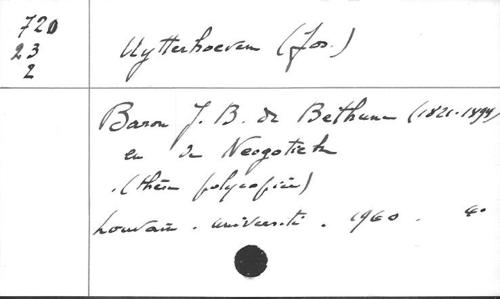 720
23
2
Uytterhoeven (Jos.)
Baron J. B. de Bethune (1821-1894)
en de Neogotiek
(thèse polycopiée)
Louvain. université. 1960. 4°